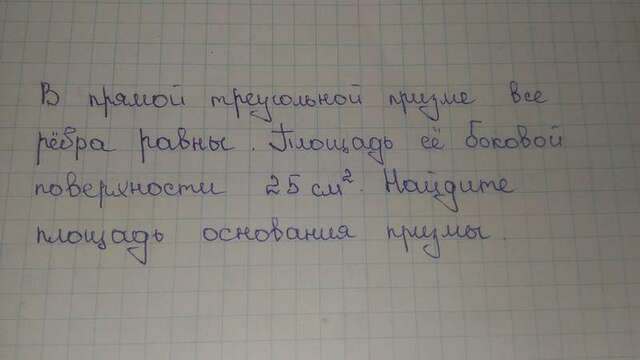 В прямой треугольной призме все
рёбра равны. Площадь её боковой
поверхности 25 см². Найдите
площадь основания призмы.